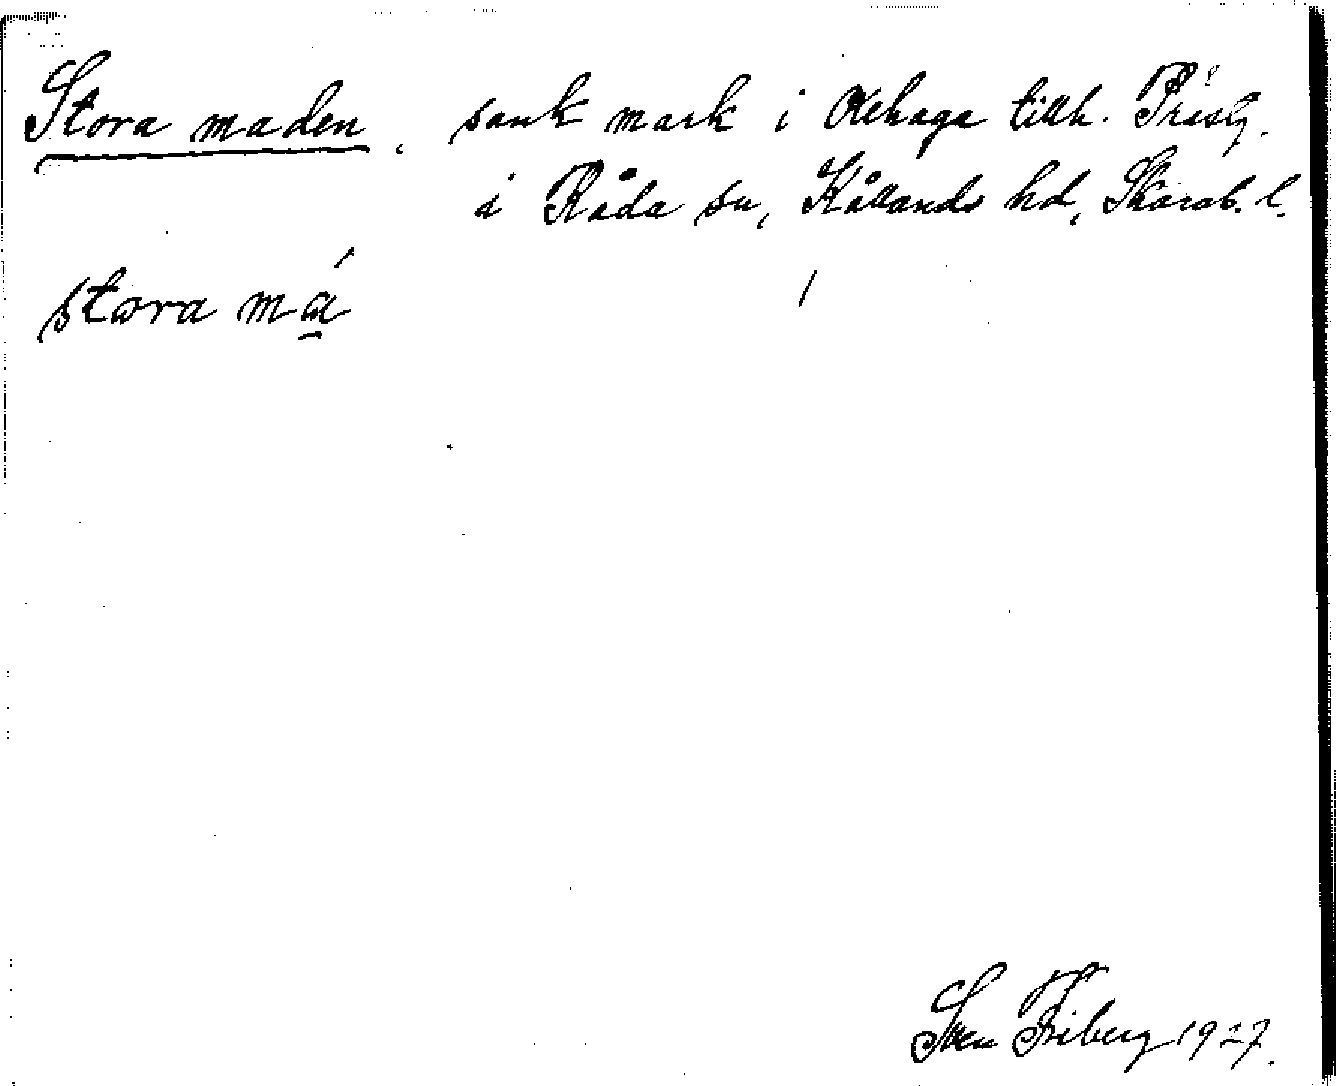 Stora maden, sank mark i Oxhaga tillh. Prästg.
i Råda sn, Kållands hd, Skarab. l.
stora má
Sven Friberg 1927.